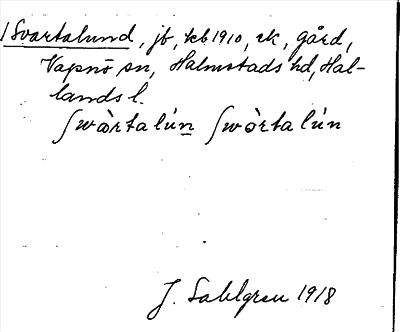 /Svartalund, jb, kcb 1910, ek, gård,
Vapnö sn, Halmstads hd, Hal-
lands l.
ʃwàrtalún ʃwòrtalún
J. Sahlgren 1918